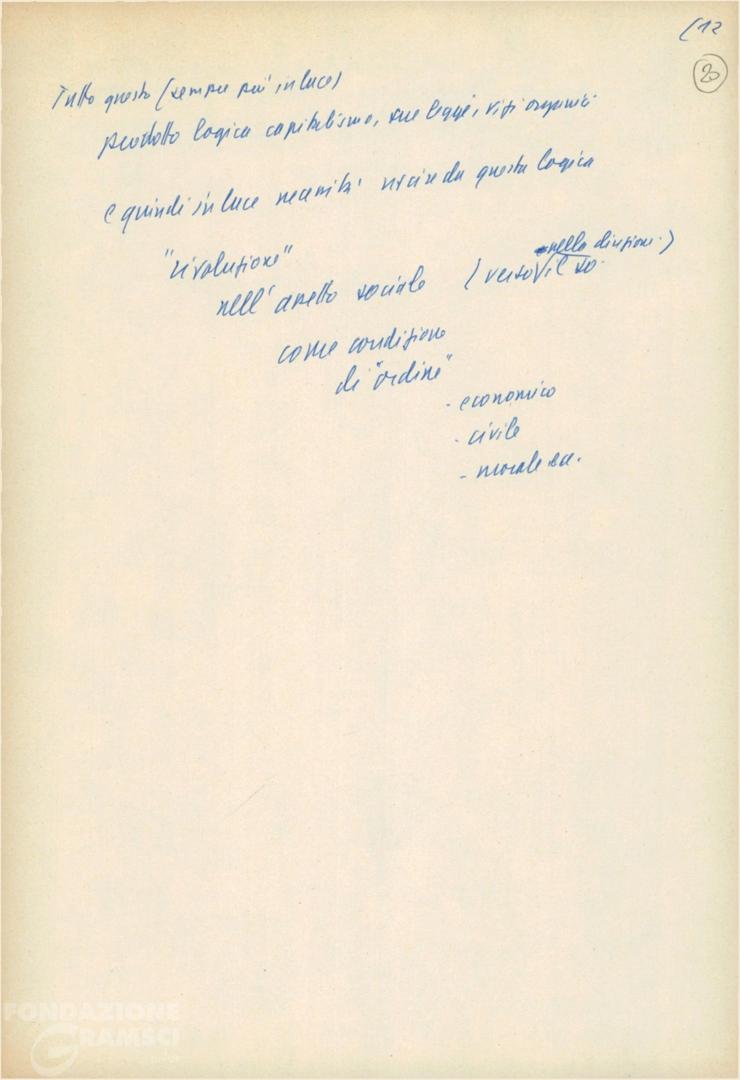 (12
20
Tutto questo (sempre più in luce)
prodotto logica capitalismo, sue leggi, vizi organici
e quindi in luce necessità uscire da questa logica
"rivoluzione"
nella direzione.)
nell'assetto sociale (verso il so.
come condizione
di "ordine"
- economico
- civile
- morale ecc.
FONDAZIONE
GRAMSCI